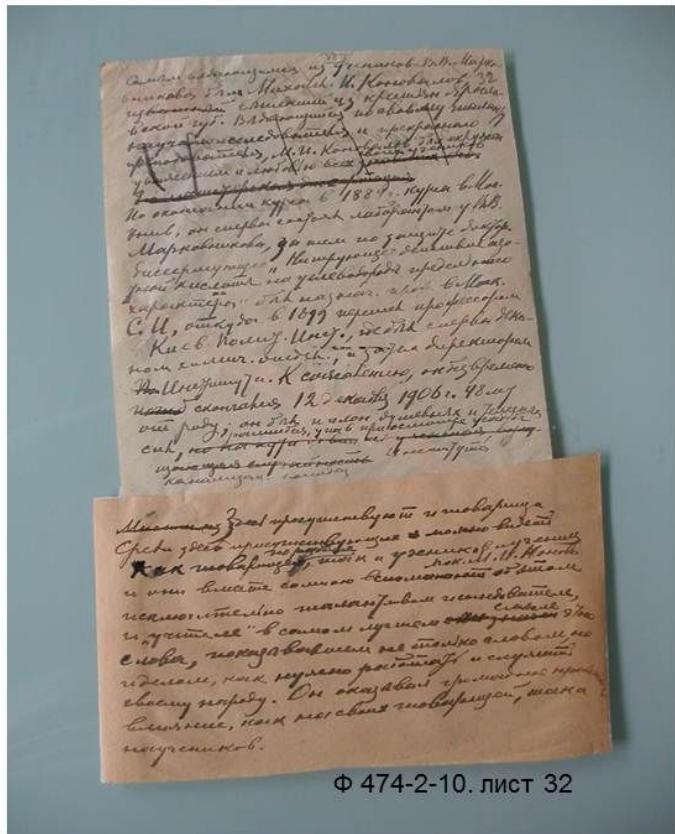 Самым выдающимся из учеников В.В. Марко-
вникова был Михаил И. Коновалов, 32
вышедший из крестьян Яросла-
вской губ. Выдающийся по своему таланту
научный исследователь и прекрасный
преподаватель, М.И. Коновалов был окружен
уважением и любовью всех
По окончании курса в 1884 г. курса в Мос.
унив., он сперва состоял лаборантом у В.В.
Марковникова, затем по защите доктор.
диссертации "Нитрующее действие азо-
тной кислоты на углеводороды предельного
характера" был назнач. проф. в Моск.
С. И., откуда в 1899 перешел профессором
Киев. Полит. Инст., где был сперва дека-
ном химич. отдел., а затем директором
Института. К сожалению, он безвременно
скончался 12 декабря 1906 г. 48 лет
от роду; он был полон душевных и
сил, но
Института
Здесь присутствуют и товарища
Среди здесь присутствующих можно видеть
как товарищей, так и учеников
и они вместе со мною вспоминают об этом
пок. М.И. Коно
исключительно талантливом исследователе,
и "учителе" в самом лучшем смысле этого
слова, показывавшем не только словом, но
и делом, как нужно работать и служить
своему народу. Он оказывал громадное
влияние, как на своих товарищей, так и
на учеников.
Ф 474-2-10. лист 32